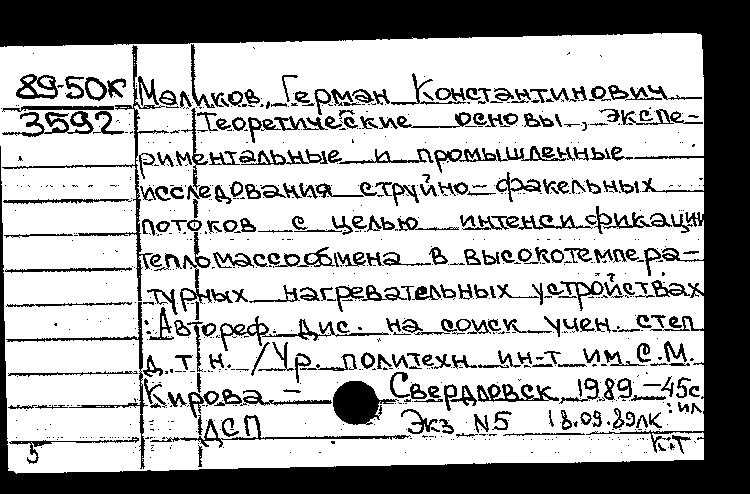 89-50к Маликов, Герман Константинович
3592 Теоретические основы, экспе-
риментальные и промышленные
исследования струйно-факельных
потоков с целью интенсификации
тепломассообмена в высокотемпера-
турных нагревательных устройствах
: Автореф. дис. на соиск учен. степ
д. т н. / Ур. политехн ин-т им. С. М.
Кирова. - Свердловск, 1989. - 45с
: ил
ДСП Экз N5 18.09.89 ЛК
5 К.Т